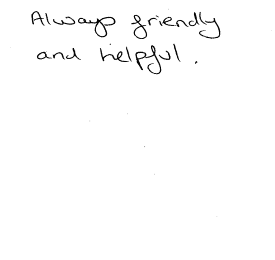 Always friendly
and helpful.